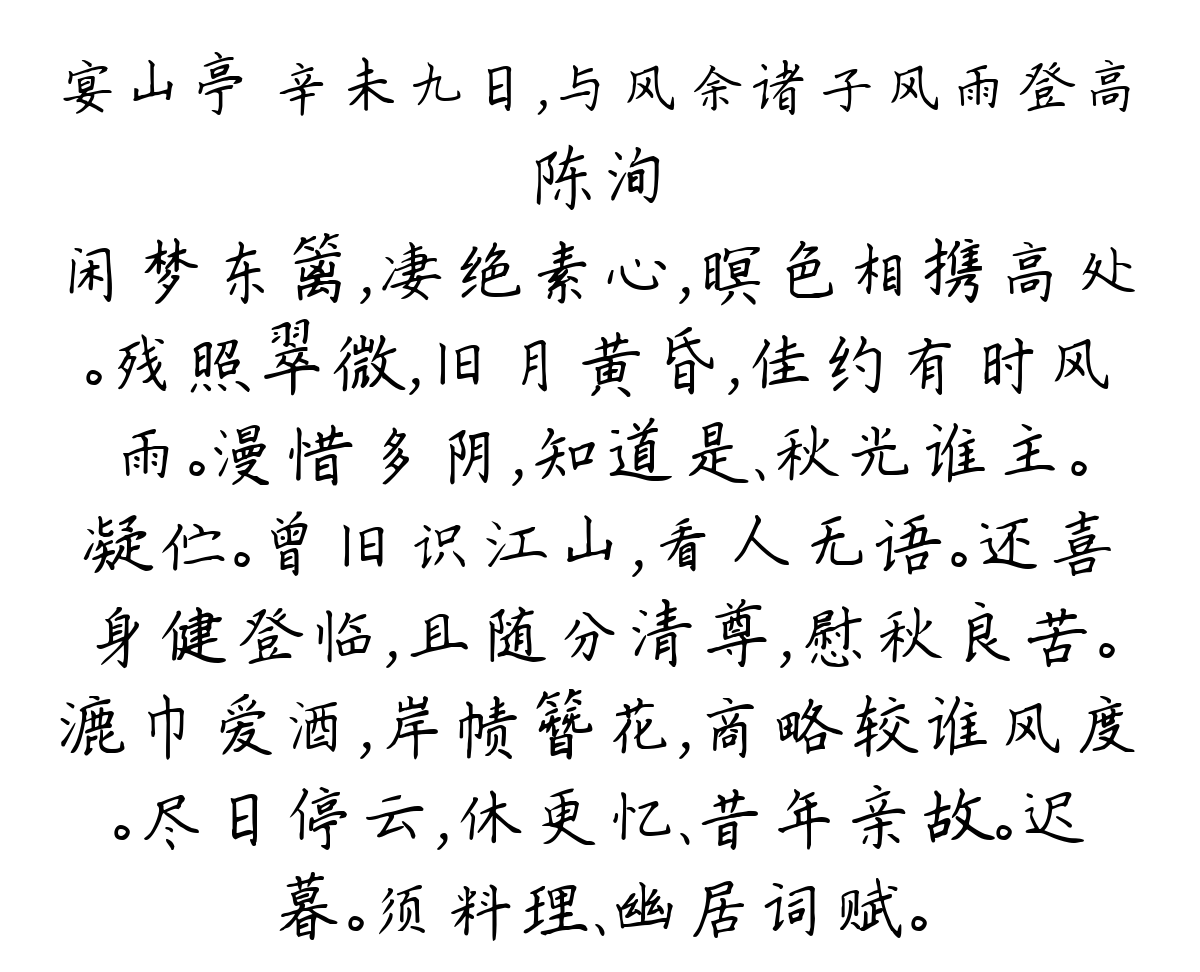 宴山亭 辛未九日,与风余诸子风雨登高
陈洵
闲梦东篱,凄绝素心,暝色相携高处
。残照翠微,旧月黄昏,佳约有时风
雨。漫惜多阴,知道是、秋光谁主。
凝伫。曾旧识江山,看人无语。还喜
身健登临,且随分清尊,慰秋良苦。
漉巾爱酒,岸帻簪花,商略较谁风度
。尽日停云,休更忆、昔年亲故。迟
暮。须料理、幽居词赋。